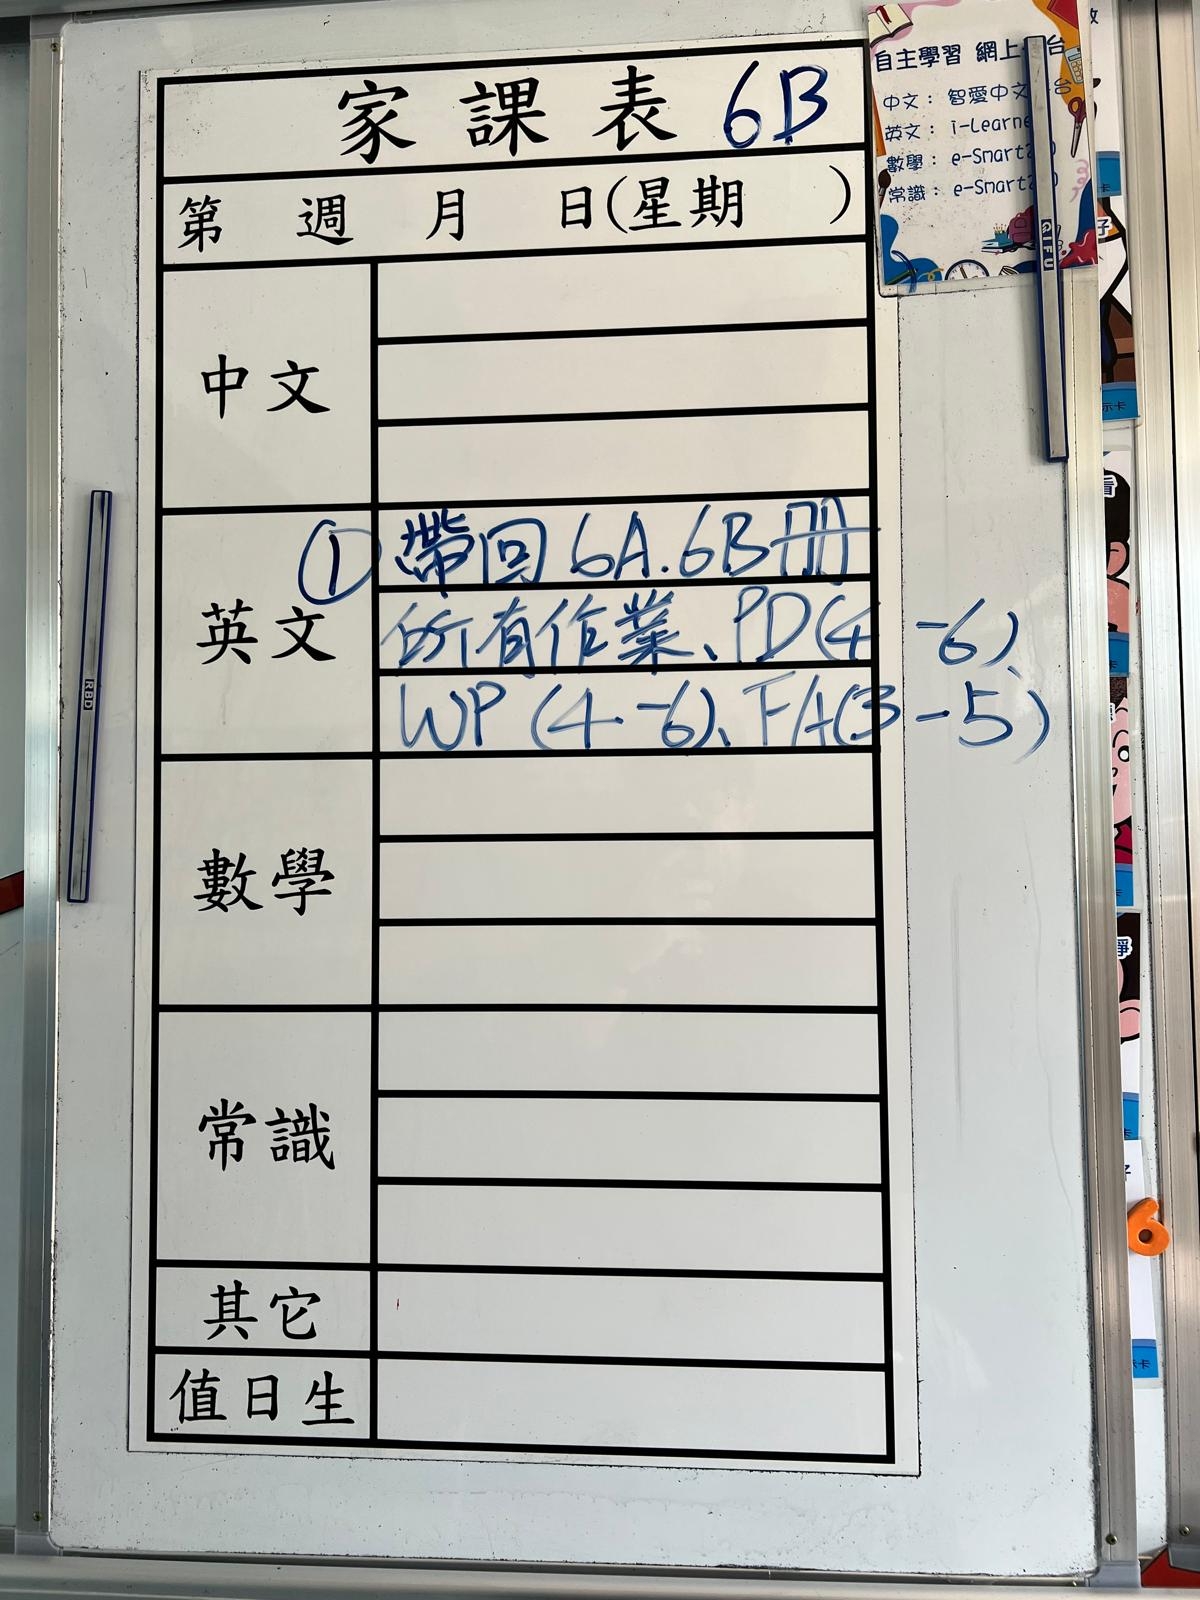 家課表 6B
第 週 月 日(星期 )
中文
英文
① 帶回 6A.6B冊
所有作業、PD(4-6)、
WP (4-6)、FA(3-5)
數學
常識
其它
值日生
自主學習 網上 台
中文： 智愛中文 台
英文： i-Learne
數學： e-Smart
常識： e-Smart
QIFU
RBD
示卡
6